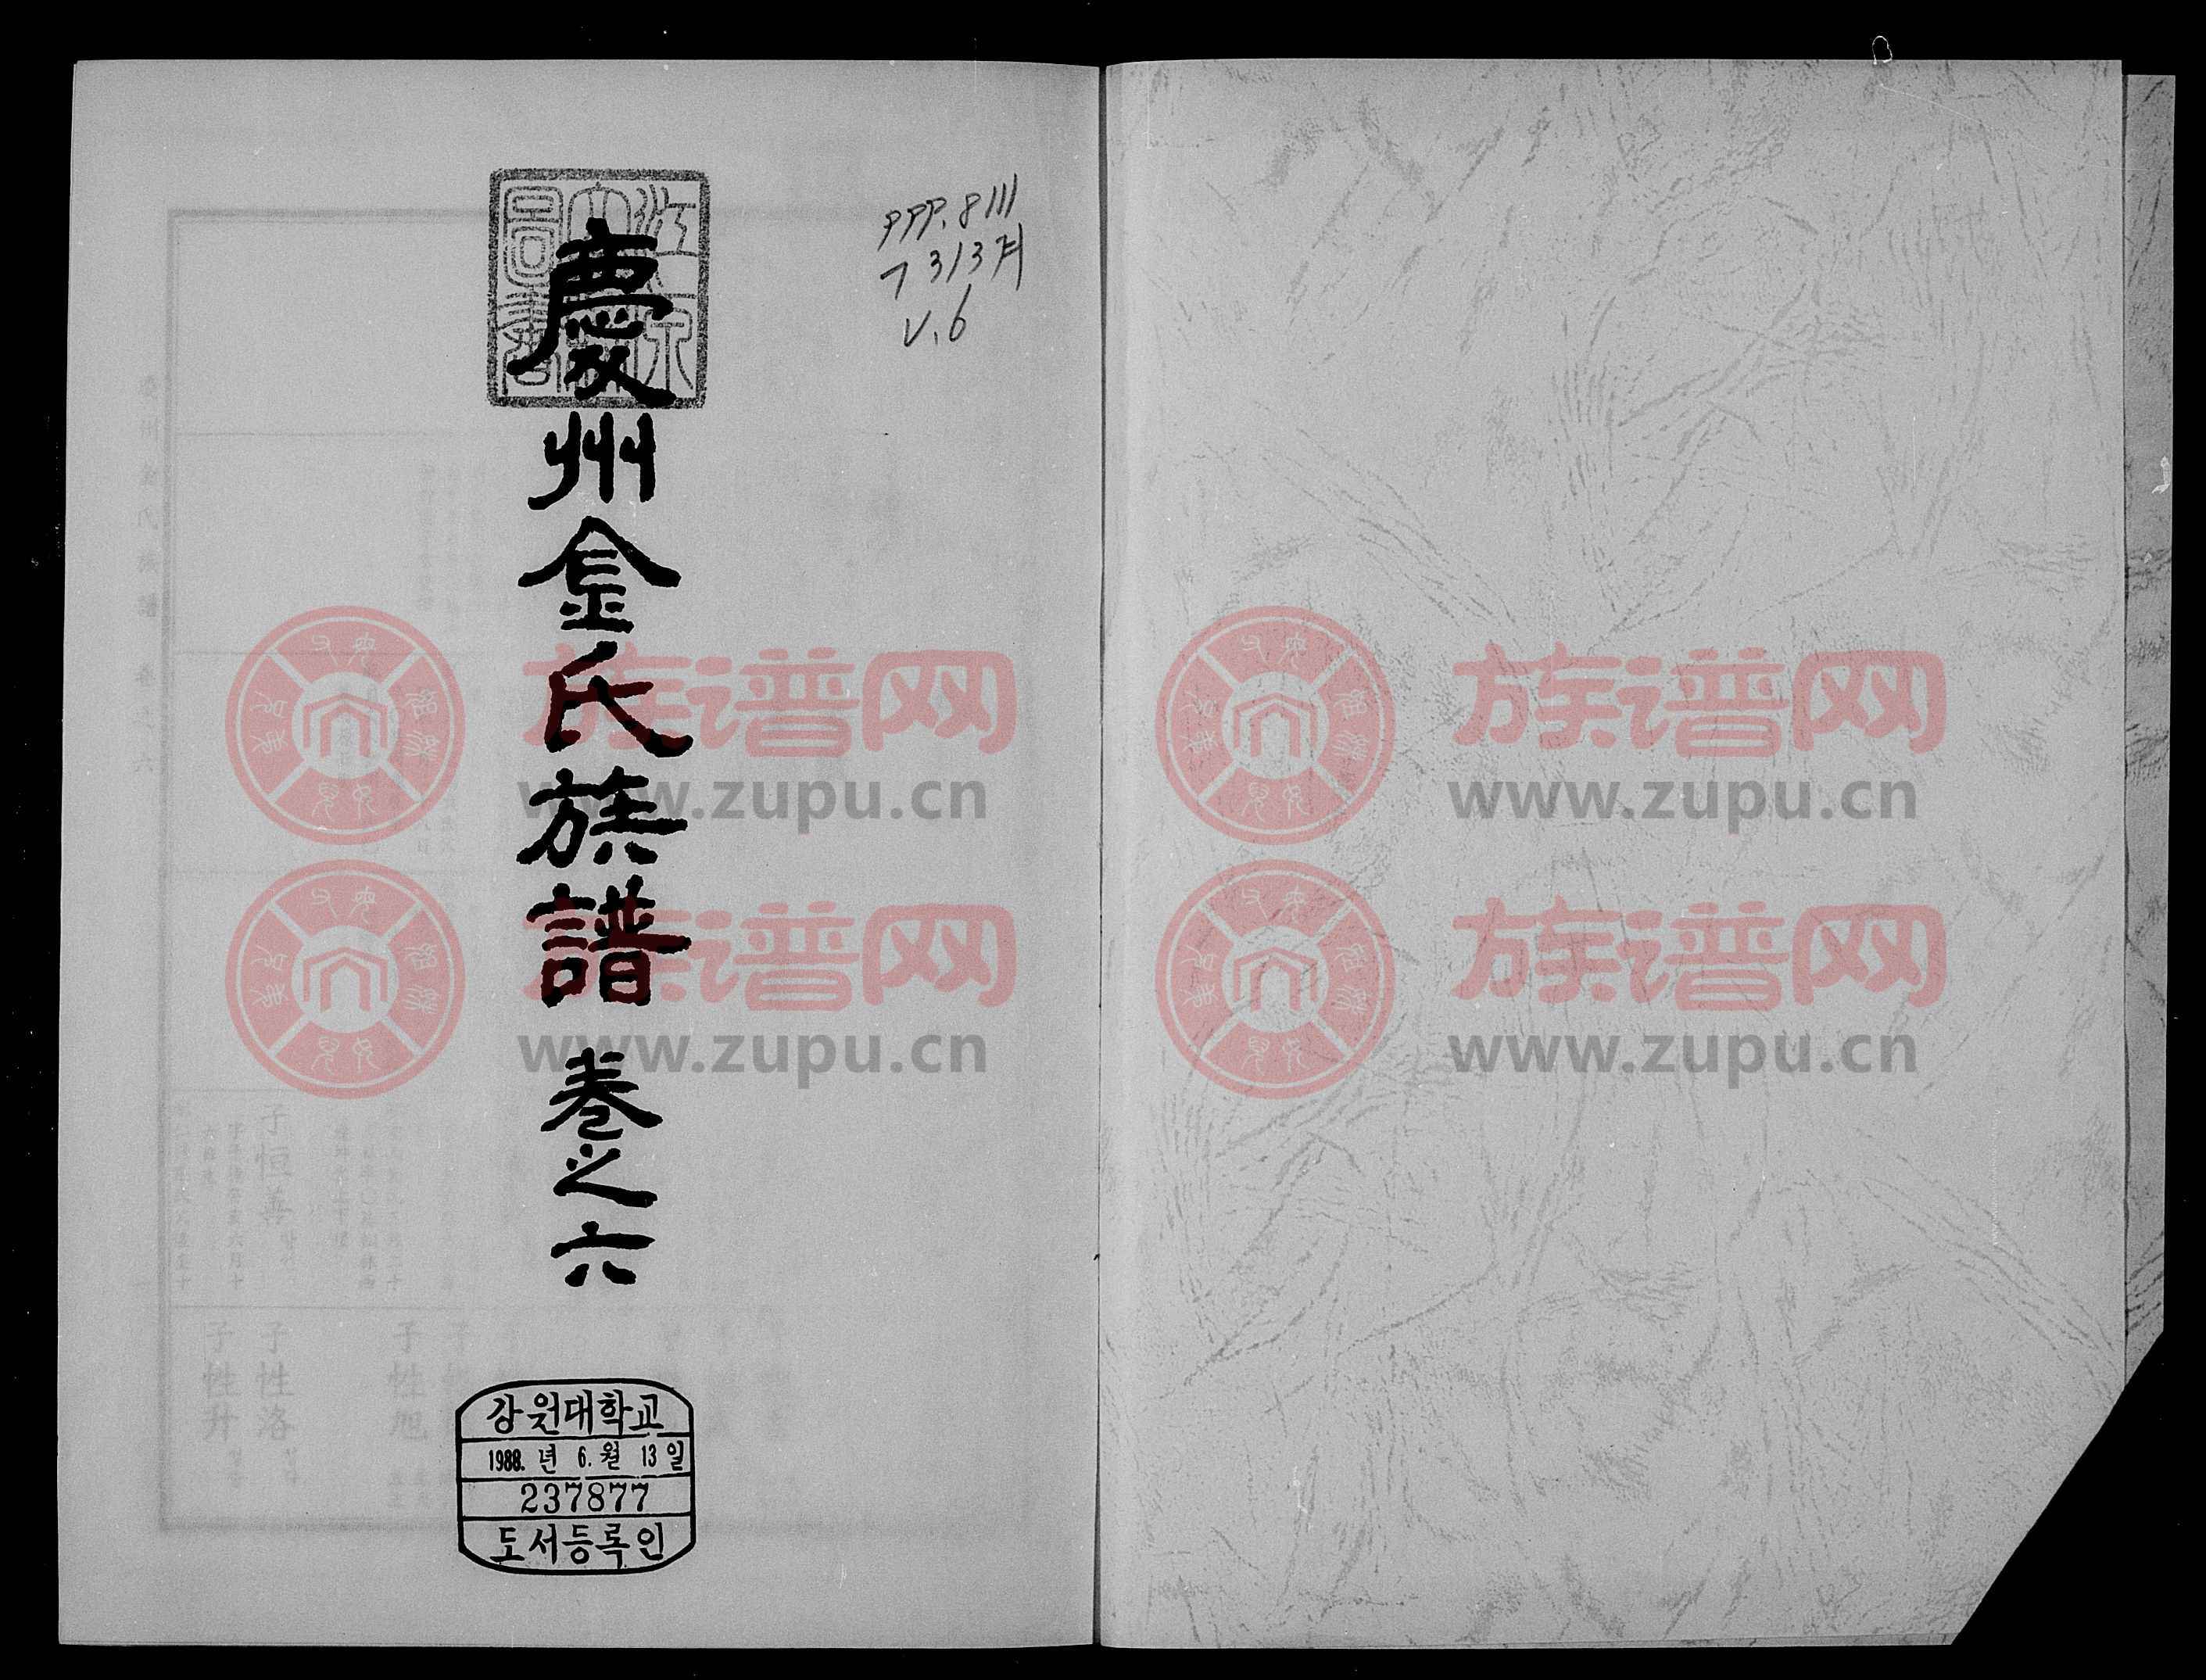 慶州金氏族譜 卷之六
PPP.8111
ㄱ313겨
V.6
강원대학교
1988. 년 6. 월 13 일
237877
도서등록인
族谱网
www.zupu.cn
族谱网
www.zupu.cn
族谱网
www.zupu.cn
族谱网
www.zupu.cn
子恒善
子性洛
子性升
子性旭